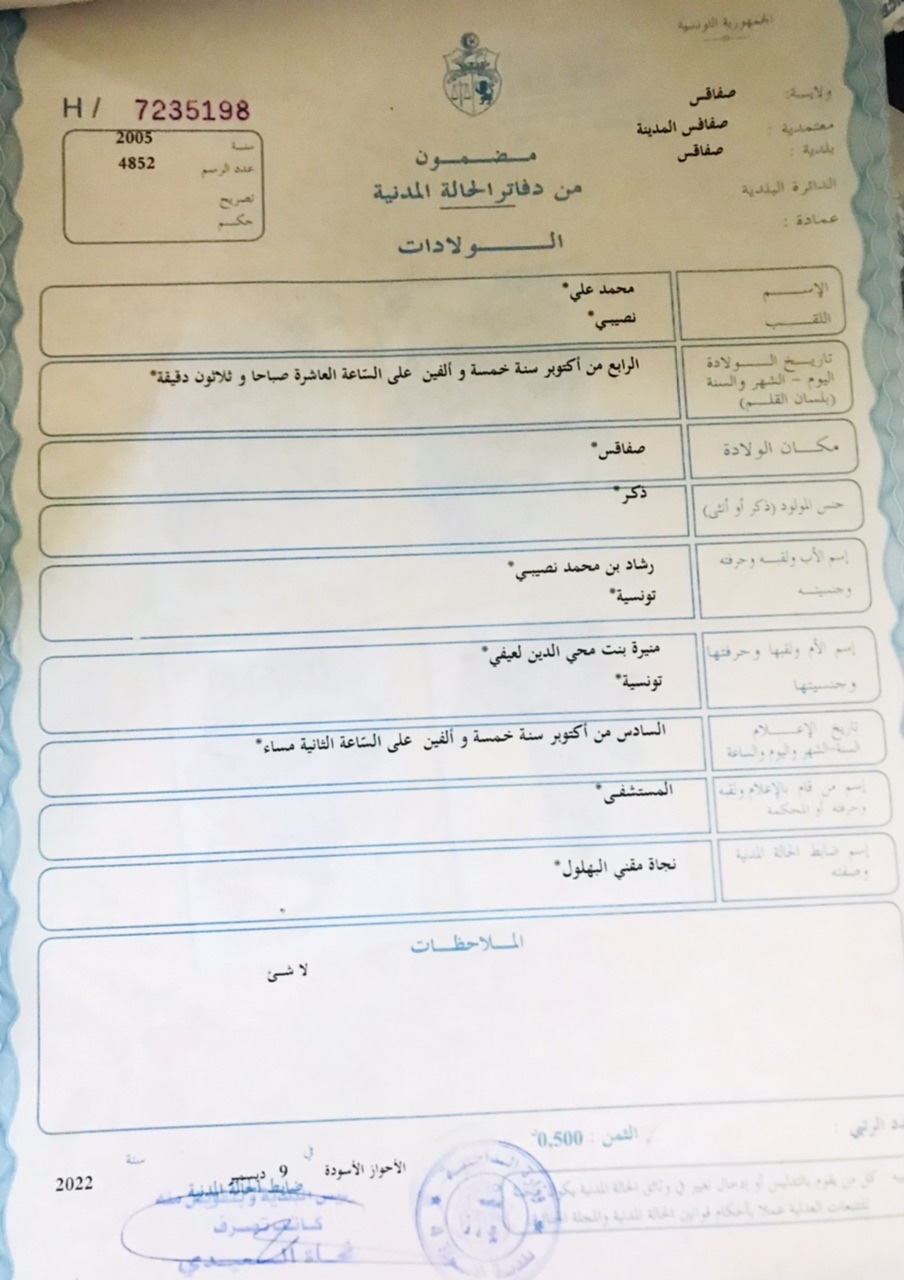 الجمهورية التونسية
ولاية: صفاقس
معتمدية : صفاقس المدينة
بلدية : صفاقس
الدائرة البلدية
عمادة :
H / 7235198
سنة 2005
عدد الرسم 4852
تصريح
حكم
مضمون
من دفاتر الحالة المدنية
الولادات
الإسم محمد علي*
اللقب نصيبي*
تاريخ الولادة
اليوم - الشهر والسنة
(بلسان القلم)
الرابع من أكتوبر سنة خمسة و ألفين على الساعة العاشرة صباحا و ثلاثون دقيقة*
مكان الولادة صفاقس*
جنس المولود (ذكر أو أنثى) ذكر*
إسم الأب ولقبه وحرفته
وجنسيته
رشاد بن محمد نصيبي*
تونسية*
إسم الأم ولقبها وحرفتها
وجنسيتها
منيرة بنت محي الدين لعيفي*
تونسية*
تاريخ الإعلام
السنة-الشهر واليوم والساعة
السادس من أكتوبر سنة خمسة و ألفين على الساعة الثانية مساء*
إسم من قام بالإعلام ولقبه
وحرفته أو المحكمة
المستشفى*
إسم ضابط الحالة المدنية
وصفته
نجاة مقني البهلول*
الملاحظات
لا شئ
الثمن : 0,500
الأحواز الأسودة في 9 ديسمبر سنة 2022
ضابط الحالة المدنية
: كل من يقوم بالتدليس أو إدخال تغيير في وثائق الحالة المدنية يكون
للتتبعات العدلية عملا بأحكام قوانين الحالة المدنية والمجلة
كاتب تصرف
نجاة السعيدي